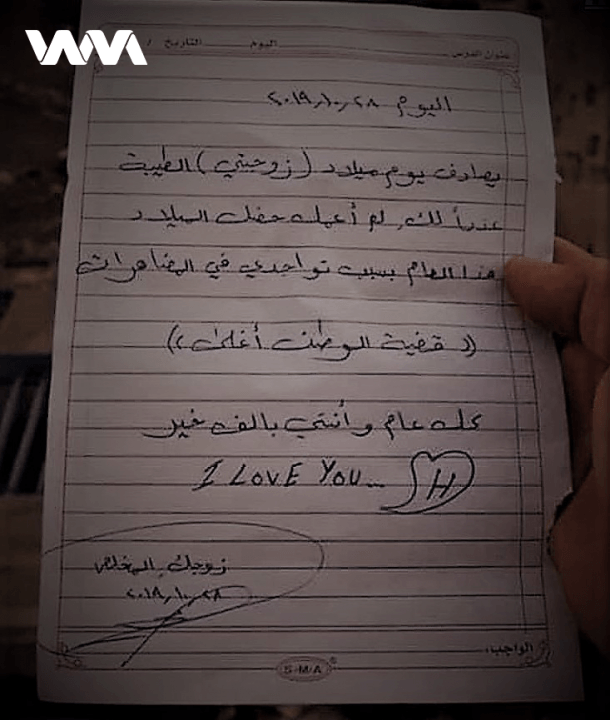 WM
عنوان الدرس اليوم التاريخ /
اليوم ٢٠١٩/١٠/٢٨
يصادف يوم ميلاد (زوجتي) الطيبة
عذراً لك، لم أعمل حفل الميلاد
هذا العام بسبب تواجدي في المضاهرات
((قضية الوطن أغلى))
كل عام وأنتي بالف خير
I LOVE YOU... H
زوجك المخلص
٢٠١٩/١٠/٢٨
الواجب:
S-M-A